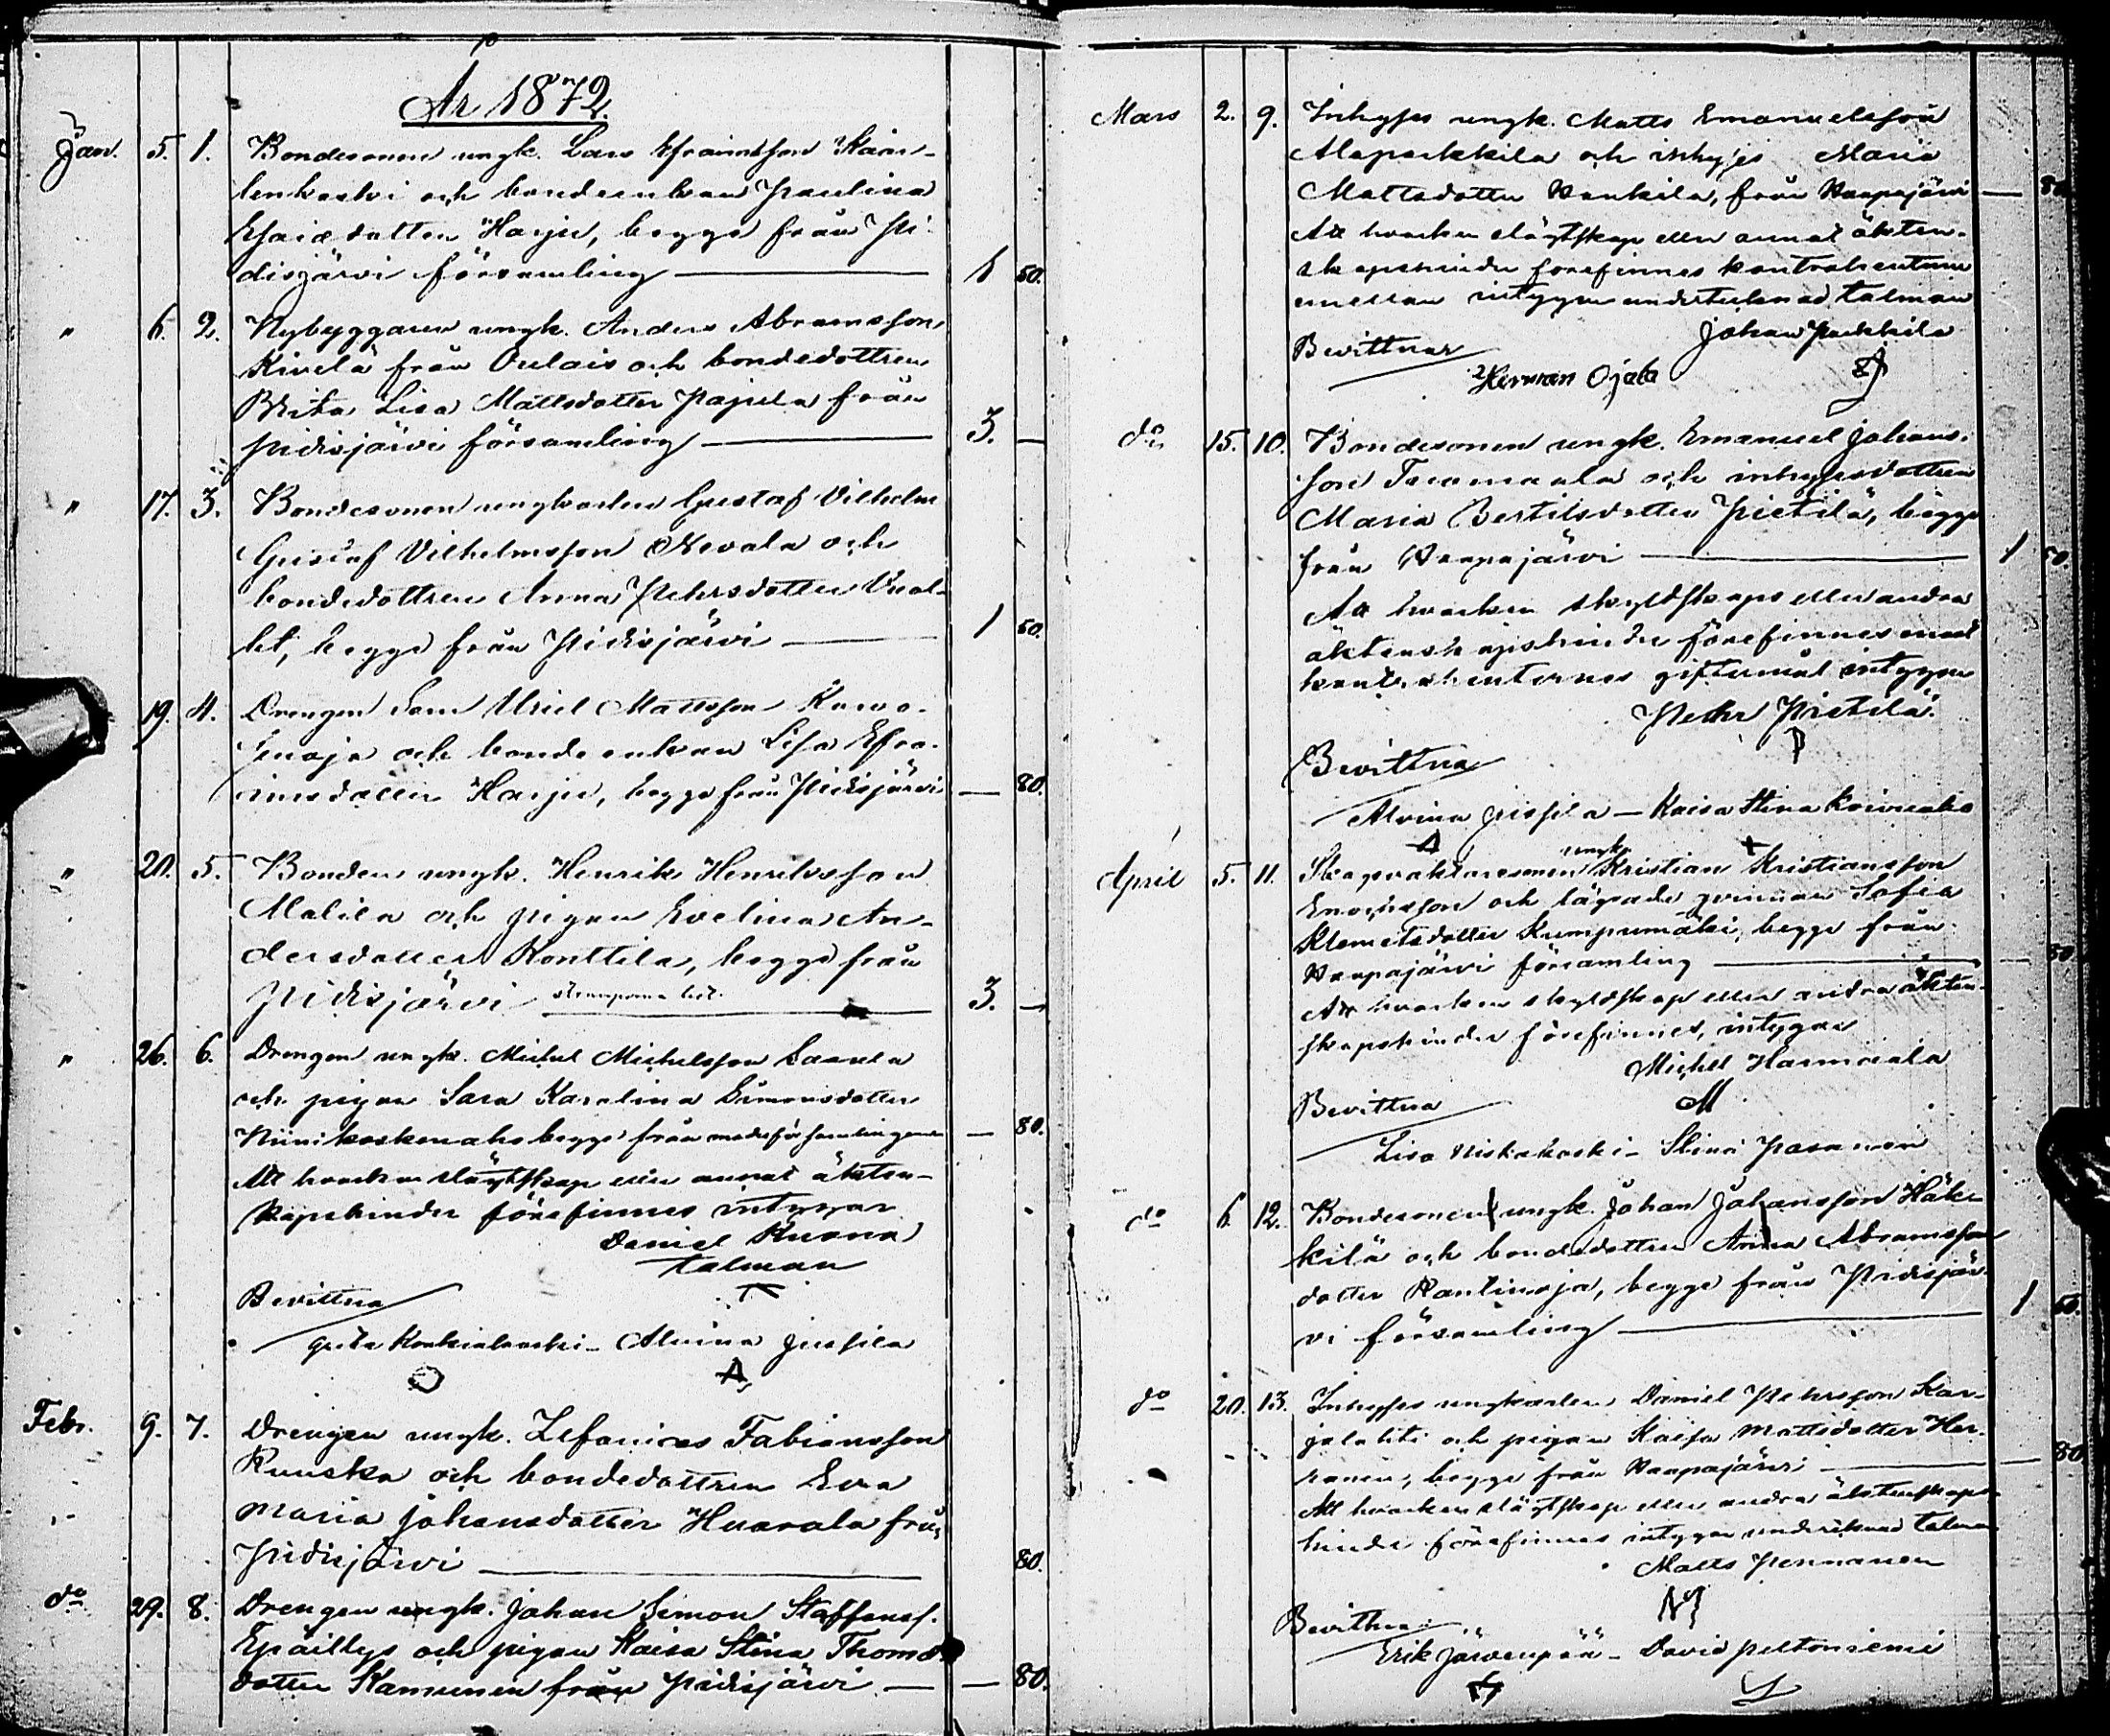 År 1872.
Jan. 5. 1. Bondesonen ungk. Lars Efraimsson Kaar-
lenkoski och bondeenkan Paulina
Esaiædotter Harju, begge från Pi-
disjärvi församling — 1 50.
" 6. 2. Nybyggaren ungk. Anders Abramsson
Kivelä från Oulais och bondedottren
Brita Lisa Mattsdotter Pajula från
Pidisjärvi församling — 3. —
" 17. 3. Bondesonen ungkarlen Gustaf Vilhelm
Gustaf Vilhelmsson Nevala och
bondedottren Anna Pehrsdotter
begge från Pidisjärvi — 1 50.
19. 4. Drengen Sam Uriel Mattsson
och bondeenkan Lisa Efra-
imsdotter Harju, begge från Pidisjärvi — 80.
" 20. 5. Bonden ungk. Henrik Henriksson
Malila och pigan Evelina An-
dersdotter Konttila, begge från
Pidisjärvi — 3. —
" 26. 6. Drengen ungk. Michel Michelsson Saarela
och pigan Sara Karolina Simonsdotter
Niinikoskenaho begge från moderförsamlingen — 80.
Att hvarken slägtskap eller annat äkten-
skapshinder förefinnes intygar
Daniel Ruona
talman
Bevittna
Alvina Jussila
Febr. 9. 7. Drengen ungk. Zefanias Fabiansson
Ruuska och bondedottren Eva
Maria Johansdotter Huarala från
Pidisjärvi — 80.
do 29. 8. Drengen ungk. Johan Simon Staffanss.
Epäillys och pigan Kaisa Stina Thomæ
dotter Kamunen från Pidisjärvi — — 80.
Mars 2. 9. Inhyses ungk. Matts Emanuelsson
Alaparkkila och inhyses Maria
Mattsdotter Hankila, från Haapajärvi — 80
Att hvarken slägtskap eller annat äkten-
skapshinder forefinnes kontrahenterne
emellan intygar undertecknad talman
Johan Parkkila
Bevittnar
Herman Ojala
do 15. 10. Bondesonen ungk. Emanuel Johans-
son Tuomaala och inhysesdottren
Maria Bertilsdotter Pietilä, begge
från Haapajärvi — 1 50.
Att hvarken skyldskaps eller andra
äktenskapshinder förefinnes mot
kontrahenternes giftermål intygar
Pehr Pietilä.
P
Bevittna
Alvina Jussila — Kaisa Stina Koivuaho
A +
April 5. 11. ungk.
Kristian Kristiansson
Enochsson och lägrade qvinnan Sofia
Klemetsdotter Kumpumäki, begge från
Haapajärvi församling — — 80
Att hvarken skyldskap eller andra äkten-
skapshinder förefinnes, intygar
Michel Harmaala
M
Bevittna
Lisa Niskakoski – Stina Pasanen
do 6. 12. Bondesonen ungk. Johan Johansson Häk-
kilä och bondedottren Anna Abramsson
dotter Rautinoja, begge från Pidisjär-
vi församling — 1 50.
do 20. 13. Inhyses ungkarlen Daniel Pehrsson Kar-
jalahti och pigan Kaisa Mattsdotter Her-
ranen, begge från Haapajärvi — — 80
Att hvarken slägtskap eller andra äktenskaps-
hinder förefinnes intygar undertecknad talman
Matts Pennanen
Bevittna:
Erik Järvenpää – David Peltoniemi